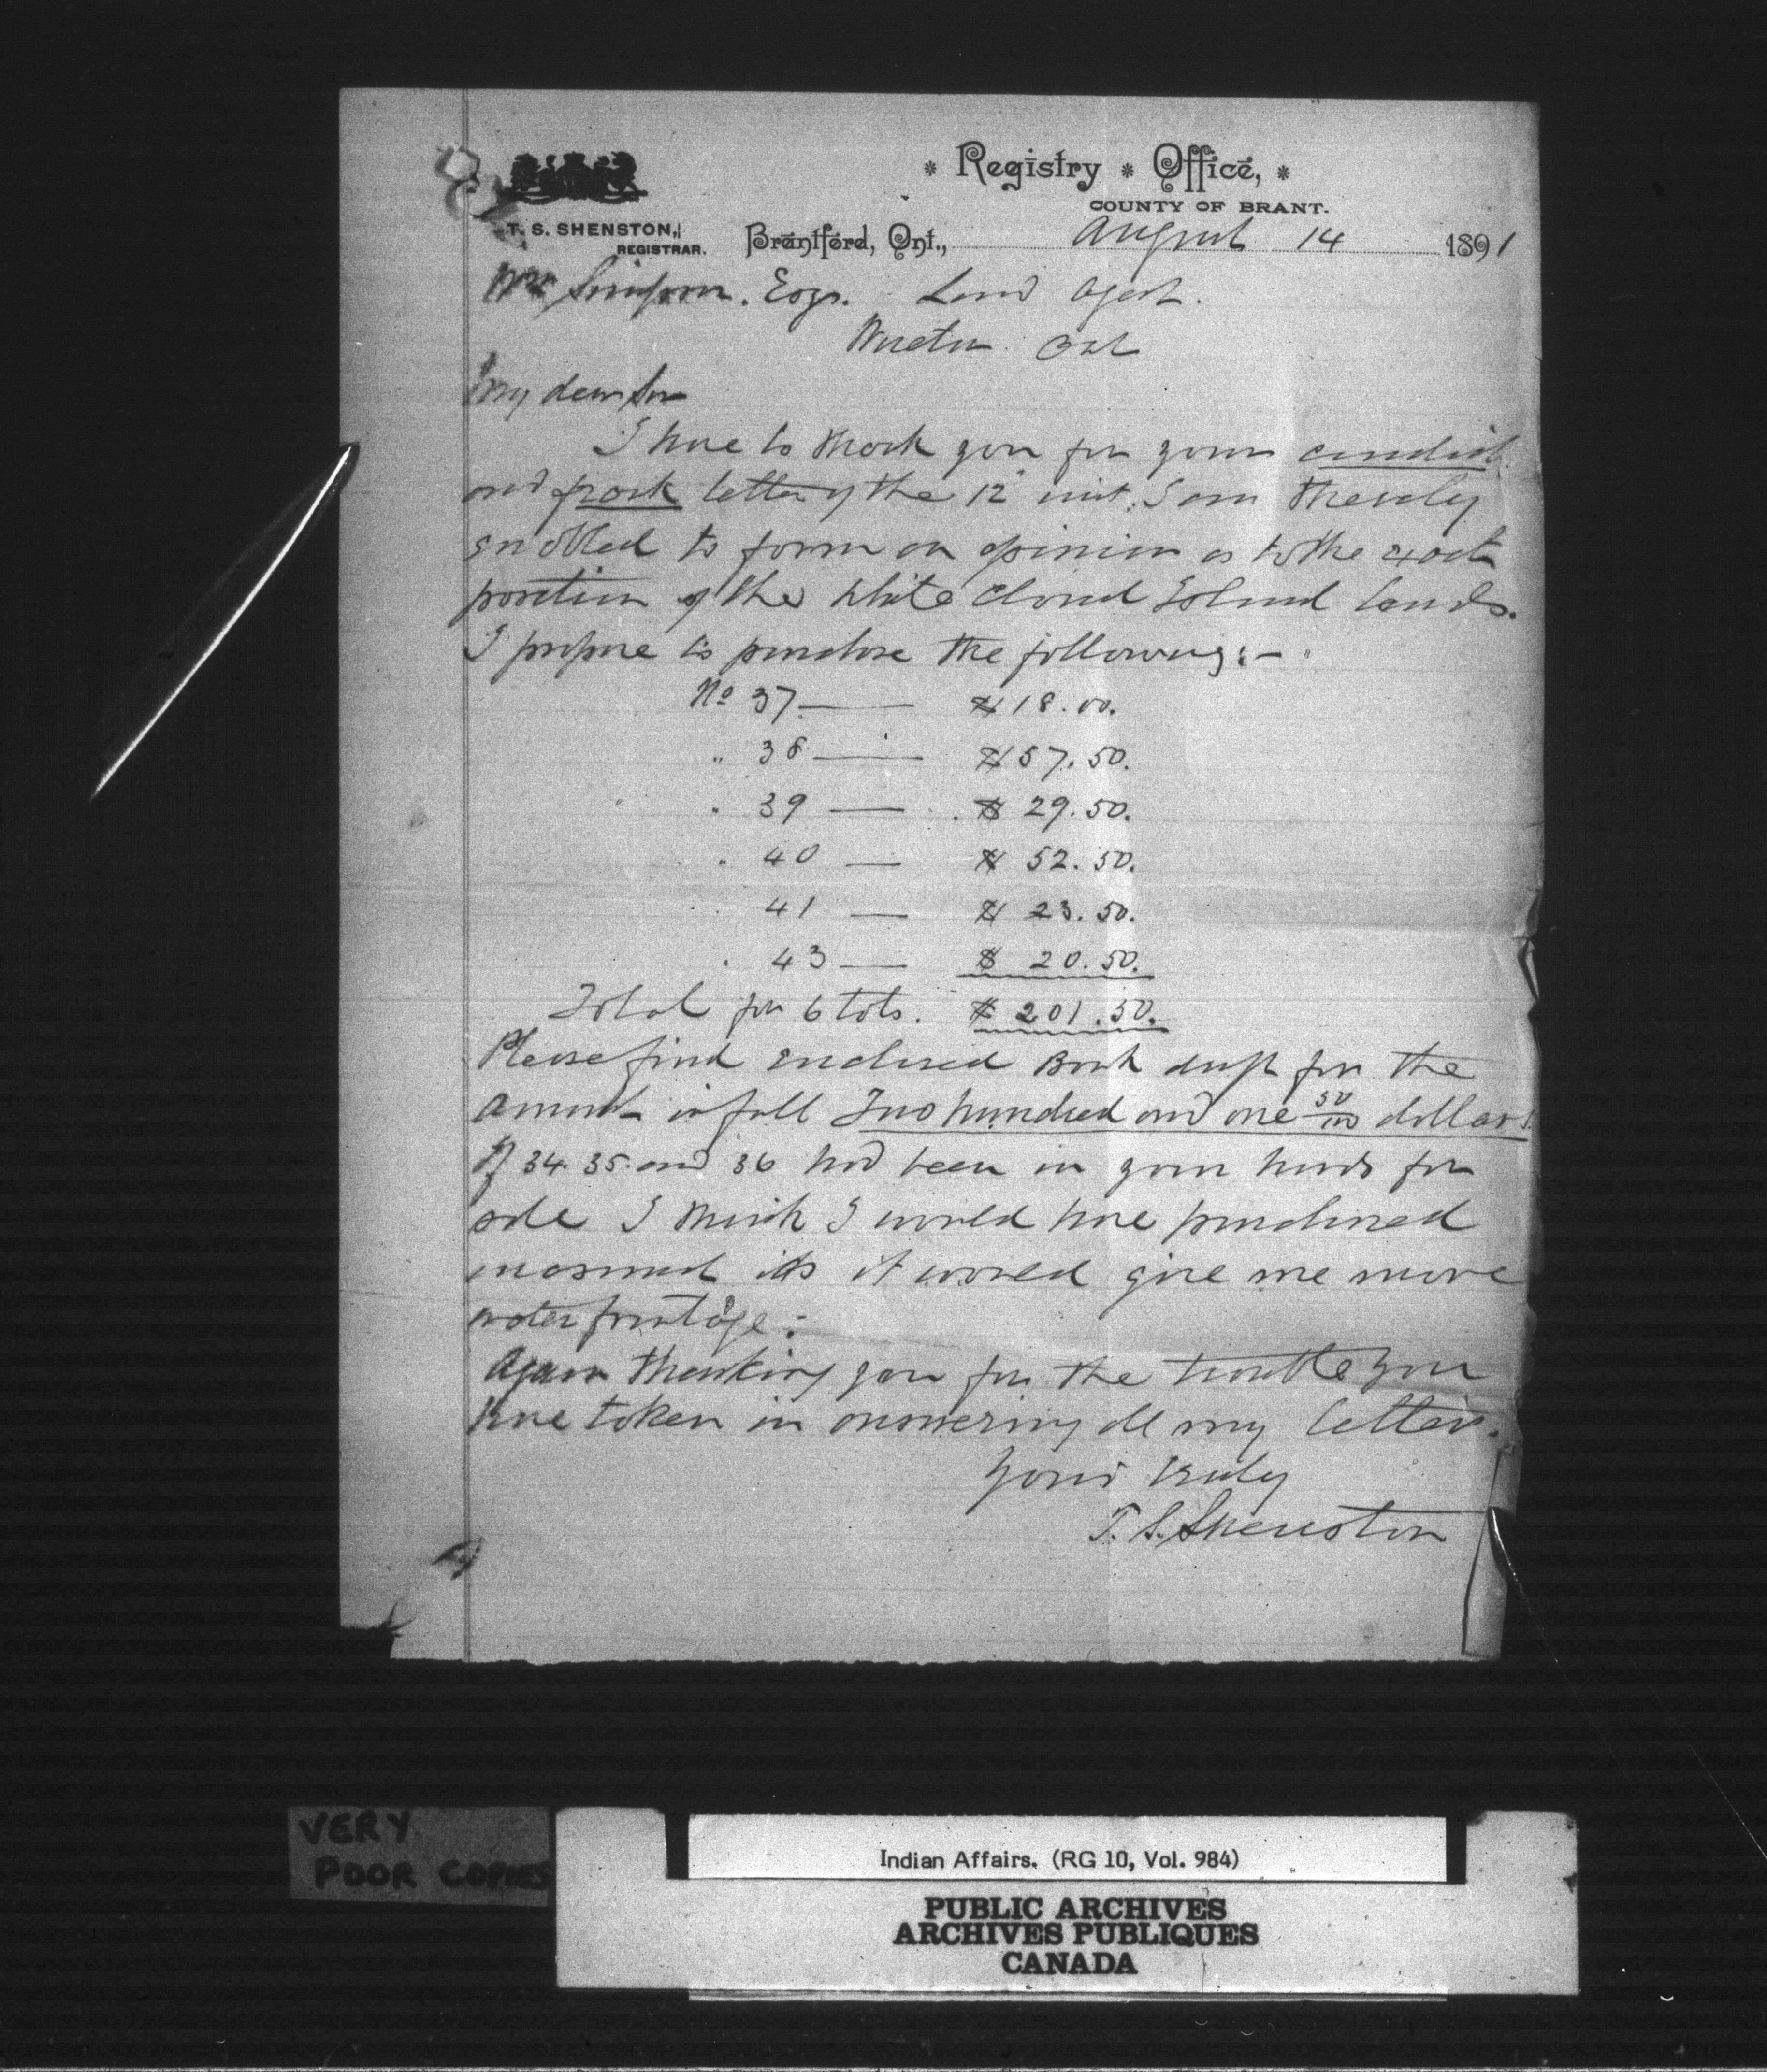 * Registry * Office, *
COUNTY OF BRANT.
T. S. SHENSTON,
REGISTRAR.
Brantford, Ont., August 14 1891
Wm Simpson. Esqr. Land Agent.
Wiarton Ont
My dear Sir
I have to thank you for your candid
and frank letter of the 12 inst. I am thereby
enabled to form an opinion as to the exact
position of the White Cloud Island lands.
I propose to purchase the following:-
No 37 — $18.00.
" 38 — $57.50.
" 39 — $29.50.
" 40 — $52.50.
41 — $23.50.
" 43 — $20.50.
Total for 6 lots. $201.50.
Please find enclosed Bank draft for the
amount in full Two hundred and one 50/100 dollars.
If 34. 35. and 36 had been in your hands for
sale I think I would have purchased
inasmuch as it would give me more
water frontage.
Again thanking you for the trouble you
have taken in answering all my letters.
Yours truly
T. S. Shenston
VERY
POOR COPIES
Indian Affairs. (RG 10, Vol. 984)
PUBLIC ARCHIVES
ARCHIVES PUBLIQUES
CANADA